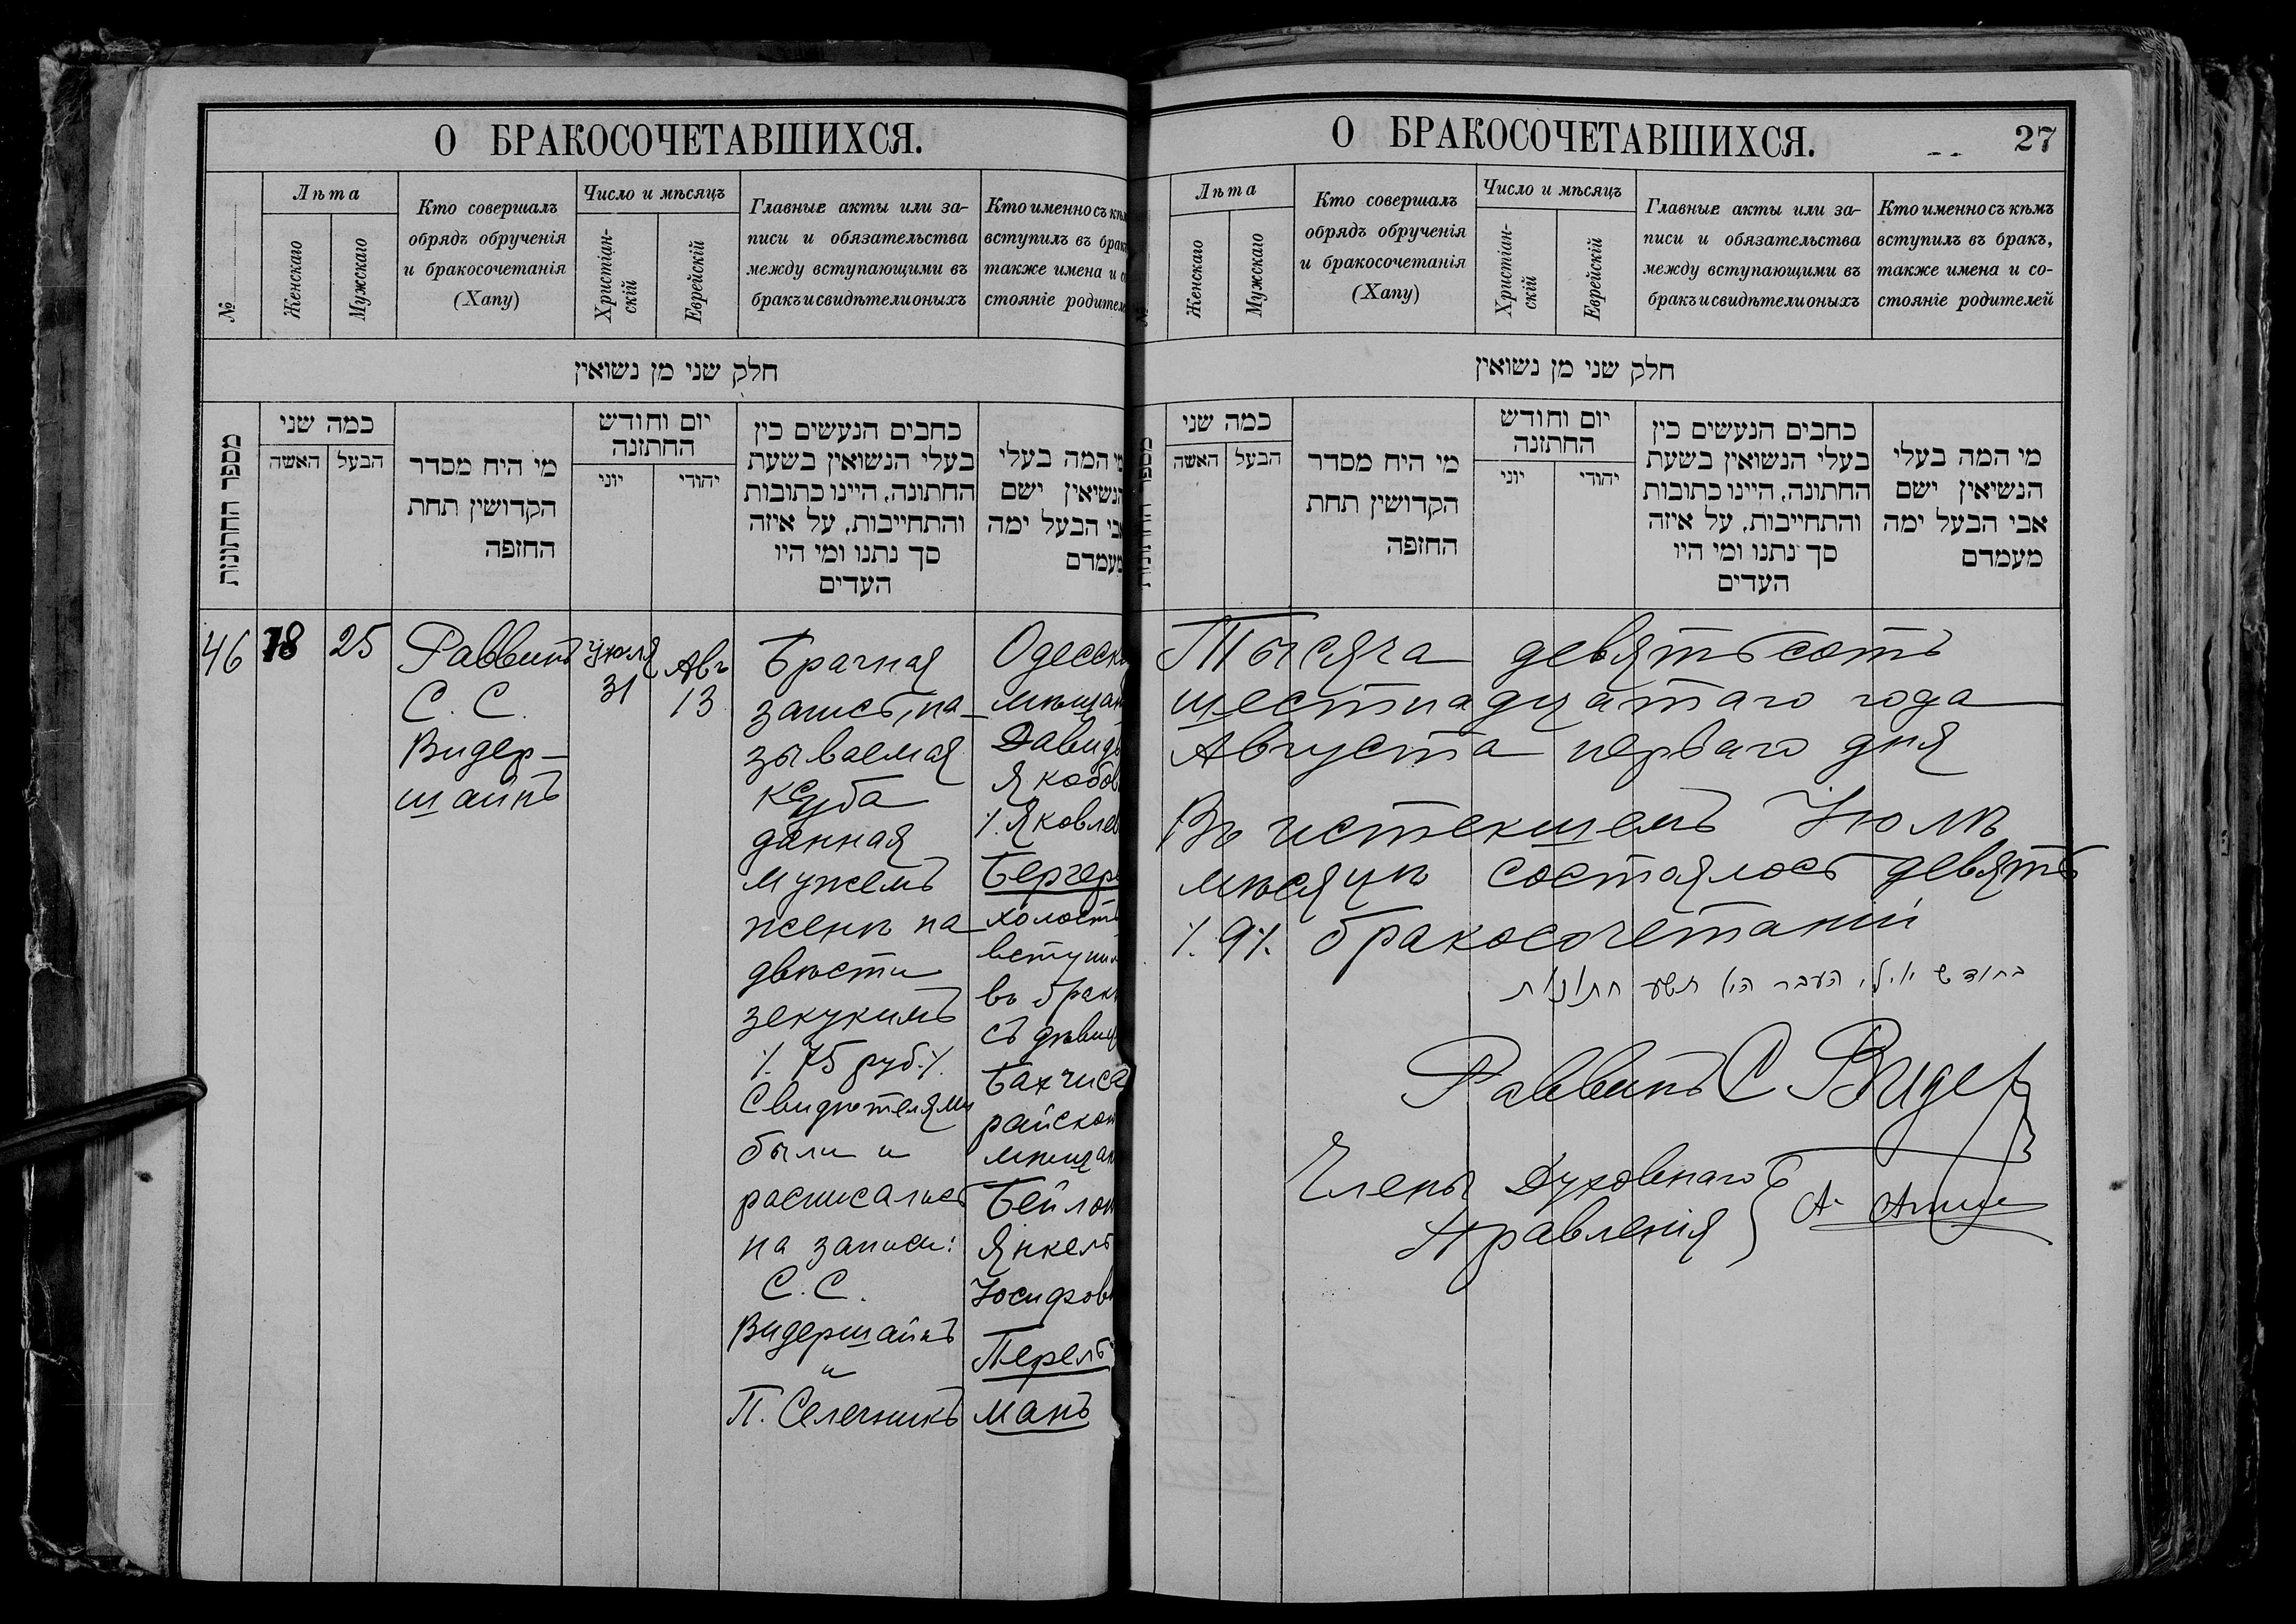 О БРАКОСОЧЕТАВШИХСЯ.
№
Лѣта
Женскаго
Мужскаго
Кто совершалъ
обрядъ обрученія
и бракосочетанія
(Хапу)
Число и мѣсяцъ
Христіан-
скій
Еврейскій
Главные акты или за-
писи и обязательства
между вступающими въ
бракъ и свидѣтели оныхъ
Кто именно съ кѣмъ
вступилъ въ бракъ
также имена и со
стояніе родителе
חלק שני מן נשואין
מספר החתונות
כמה שני
האשה
הבעל
מי היח מסדר
הקדושין תחת
החופה
יום וחודש
החתונה
יוני
יהודי
כחבים הנעשים כין
בעלי הנשואין בשעת
החתונה, היינו כתובות
והתחייבות, על איזה
סך נתנו ומי היו
העדים
מי המה בעלי
הנשיאין ישם
אבי הבעל ימה
מעמדם
46
18
25
Раввинъ
С. С.
Видер-
шайнъ
Іюля
31
Авъ
13
Брачная
запись, на-
зываемая
ксуба
данная
мужемъ
женѣ на
двѣсти
зекукимъ
/. 75 руб. /.
Свидѣтелями
были и
расписались
на записи:
С. С.
Видершайнъ
и
П. Селечникъ
Одесск
мѣщан
Давидъ
Якобов
/. Яковлев
Бергеръ
холостъ
вступил
въ бракъ
съ дѣвиц
Бахчиса
райской
мѣщан
Бейлой
Янкель
Іосифов
Перель
манъ
О БРАКОСОЧЕТАВШИХСЯ.
27
№
Лѣта
Женскаго
Мужскаго
Кто совершалъ
обрядъ обрученія
и бракосочетанія
(Хапу)
Число и мѣсяцъ
Христіан-
скій
Еврейскій
Главные акты или за-
писи и обязательства
между вступающими въ
бракъ и свидѣтели оныхъ
Кто именно съ кѣмъ
вступилъ въ бракъ,
также имена и со-
стояніе родителей
חלק שני מן נשואין
כמה שני
האשה
הבעל
מי היח מסדר
הקדושין תחת
החופה
יום וחודש
החתונה
יוני
יהודי
כחבים הנעשים כין
בעלי הנשואין בשעת
החתונה, היינו כתובות
והתחייבות, על איזה
סך נתנו ומי היו
העדים
מי המה בעלי
הנשיאין ישם
אבי הבעל ימה
מעמדם
Тысяча девятьсотъ
шестнадцатаго года
Августа перваго дня
Въ истекшемъ Іюлѣ
мѣсяцѣ состоялось девять
/. 9 /. бракосочетаній
בחודש יולי העבר היו תשע חתונות
Раввинъ С Видер
Члены Духовнаго
Правленія
А.